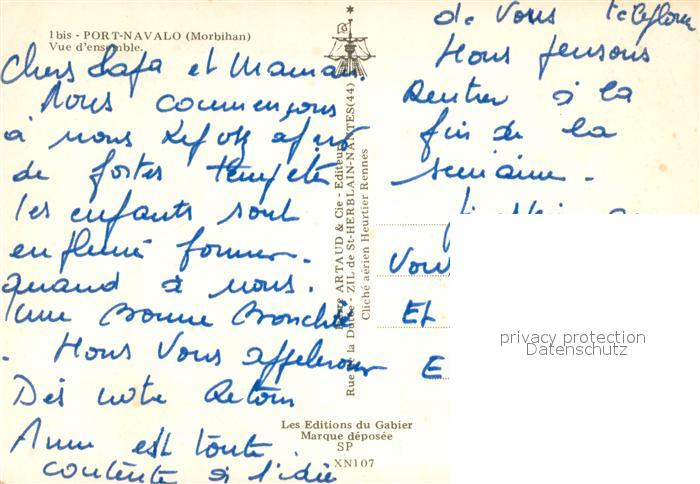 1bis - PORT-NAVALO (Morbihan)
Vue d'ensemble.
Chers Papa et Maman.
Nous commençons
à nous
de fortes tempête
les enfants sont
en pleine forme.
quand à nous.
Une Bonne Bronchite
. Nous Vous appelerons
Dès notre Retour
Anne est toute
contente à l'idée
de Vous
Nous pensons
Rentrer à la
fin de la
semaine.
Vou
Et
E
Pierre ARTAUD & Cie - Editeurs
Rue de la Dutée - ZIL de St-HERBLAIN-NANTES (44)
Cliché aérien Heurtier Rennes
Les Editions du Gabier
Marque déposée
SP
XN107
privacy protection
Datenschutz